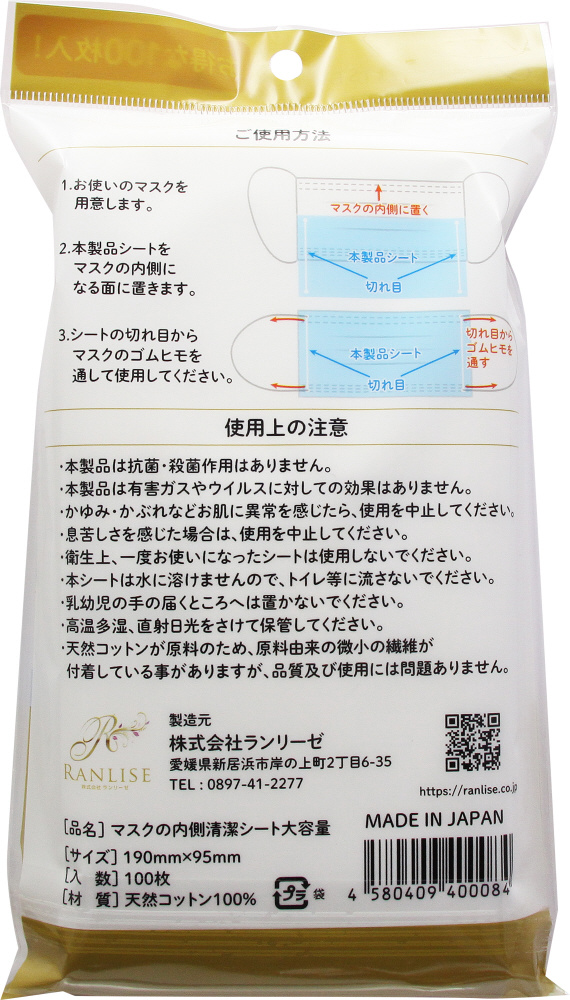 お得な100枚入!
ご使用方法
1.お使いのマスクを
用意します。
マスクの内側に置く
本製品シート
切れ目
2.本製品シートを
マスクの内側に
なる面に置きます。
3.シートの切れ目から
マスクのゴムヒモを
通して使用してください。
本製品シート
切れ目
切れ目から
ゴムヒモを
通す
使用上の注意
・本製品は抗菌・殺菌作用はありません。
・本製品は有害ガスやウイルスに対しての効果はありません。
・かゆみ・かぶれなどお肌に異常を感じたら、使用を中止してください。
・息苦しさを感じた場合は、使用を中止してください。
・衛生上、一度お使いになったシートは使用しないでください。
・本シートは水に溶けませんので、トイレ等に流さないでください。
・乳幼児の手の届くところへは置かないでください。
・高温多湿、直射日光をさけて保管してください。
・天然コットンが原料のため、原料由来の微小の繊維が
付着している事がありますが、品質及び使用には問題ありません。
R
RANLISE
株式会社 ランリーゼ
製造元
株式会社ランリーゼ
愛媛県新居浜市岸の上町2丁目6-35
TEL : 0897-41-2277
https://ranlise.co.jp
[品名] マスクの内側清潔シート大容量
[サイズ] 190mm×95mm
[入 数] 100枚
[材 質] 天然コットン100%
プラ 袋
MADE IN JAPAN
4 580409 400084